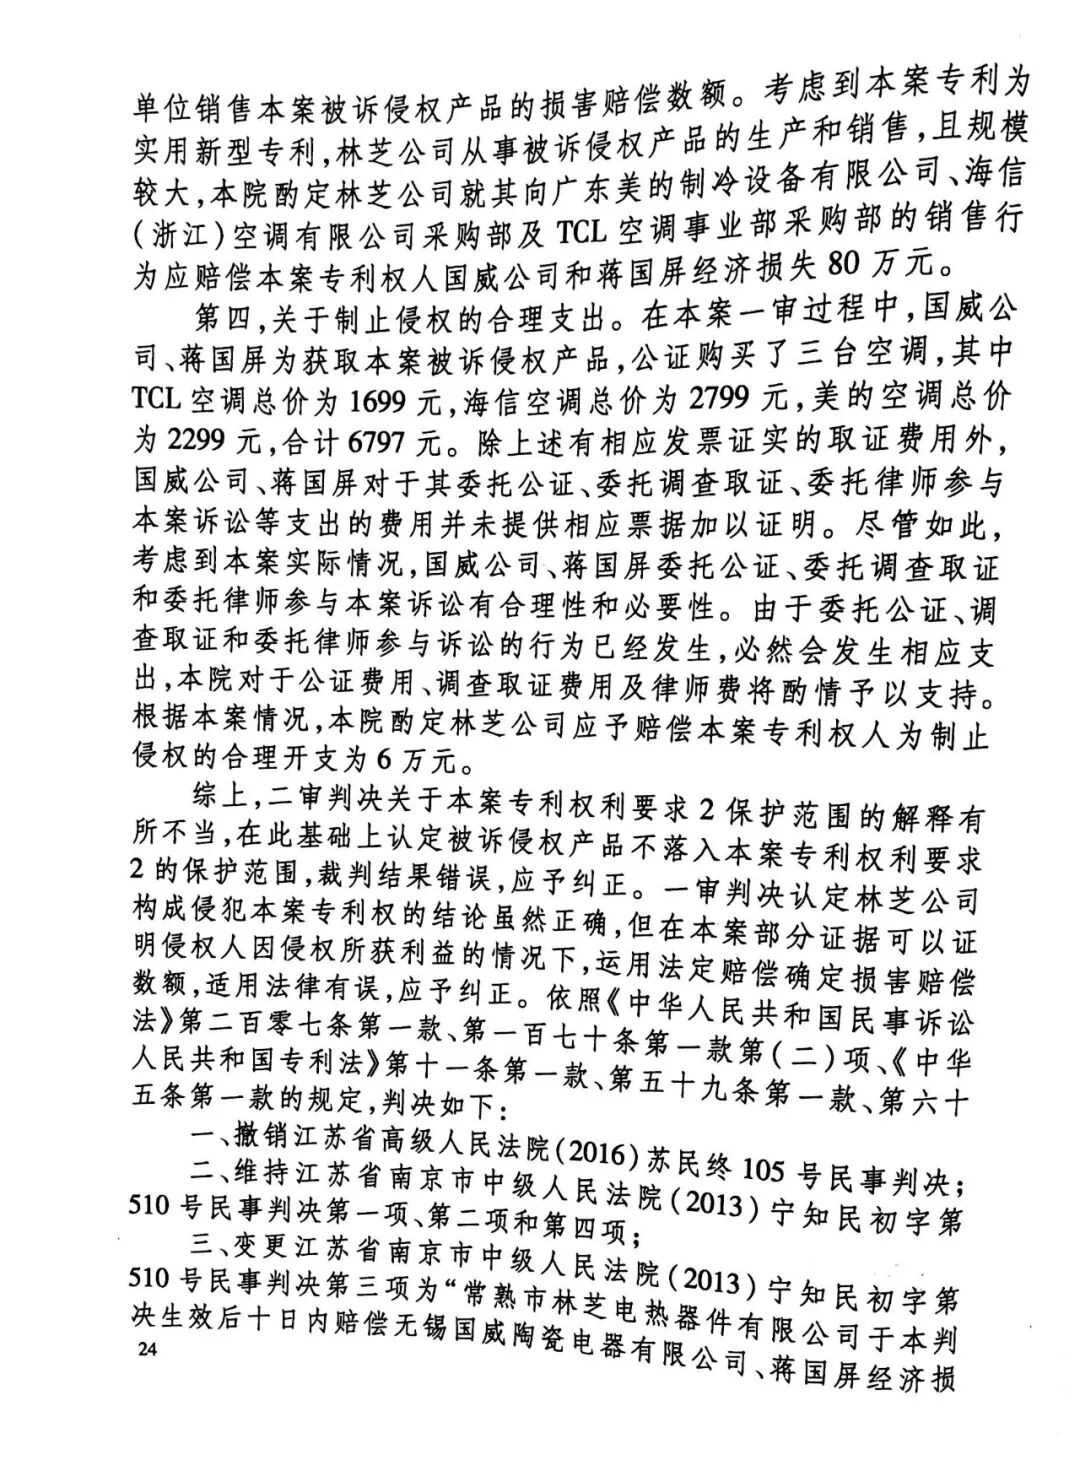 单位销售本案被诉侵权产品的损害赔偿数额。考虑到本案专利为
实用新型专利,林芝公司从事被诉侵权产品的生产和销售,且规模
较大,本院酌定林芝公司就其向广东美的制冷设备有限公司、海信
(浙江)空调有限公司采购部及 TCL 空调事业部采购部的销售行
为应赔偿本案专利权人国威公司和蒋国屏经济损失 80 万元。
第四,关于制止侵权的合理支出。在本案一审过程中,国威公
司、蒋国屏为获取本案被诉侵权产品,公证购买了三台空调,其中
TCL 空调总价为 1699 元,海信空调总价为 2799 元,美的空调总价
为 2299 元,合计 6797 元。除上述有相应发票证实的取证费用外,
国威公司、蒋国屏对于其委托公证、委托调查取证、委托律师参与
本案诉讼等支出的费用并未提供相应票据加以证明。尽管如此,
考虑到本案实际情况,国威公司、蒋国屏委托公证、委托调查取证
和委托律师参与本案诉讼有合理性和必要性。由于委托公证、调
查取证和委托律师参与诉讼的行为已经发生,必然会发生相应支
出,本院对于公证费用、调查取证费用及律师费将酌情予以支持。
根据本案情况,本院酌定林芝公司应予赔偿本案专利权人为制止
侵权的合理开支为 6 万元。
综上,二审判决关于本案专利权利要求 2 保护范围的解释有
所不当,在此基础上认定被诉侵权产品不落入本案专利权利要求
2 的保护范围,裁判结果错误,应予纠正。一审判决认定林芝公司
构成侵犯本案专利权的结论虽然正确,但在本案部分证据可以证
明侵权人因侵权所获利益的情况下,运用法定赔偿确定损害赔偿
数额,适用法律有误,应予纠正。依照《中华人民共和国民事诉讼
法》第二百零七条第一款、第一百七十条第一款第(二)项、《中华
人民共和国专利法》第十一条第一款、第五十九条第一款、第六十
五条第一款的规定,判决如下:
一、撤销江苏省高级人民法院(2016)苏民终 105 号民事判决;
二、维持江苏省南京市中级人民法院(2013)宁知民初字第
510 号民事判决第一项、第二项和第四项;
三、变更江苏省南京市中级人民法院(2013)宁知民初字第
510 号民事判决第三项为“常熟市林芝电热器件有限公司于本判
决生效后十日内赔偿无锡国威陶瓷电器有限公司、蒋国屏经济损
24